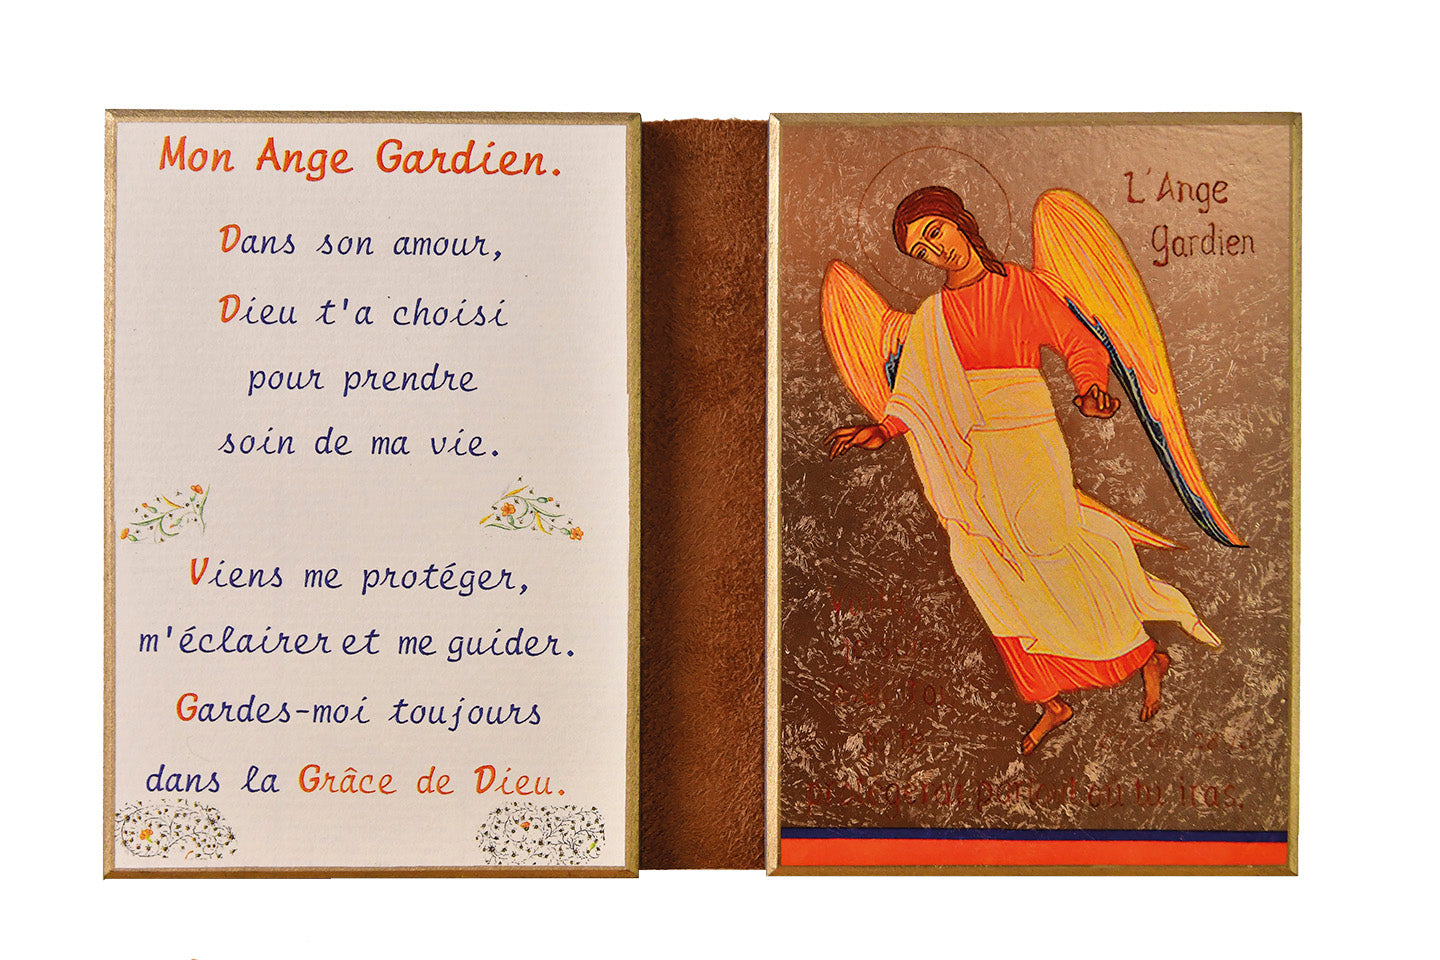 Mon Ange Gardien.
Dans son amour,
Dieu t'a choisi
pour prendre
soin de ma vie.
Viens me protéger,
m'éclairer et me guider.
Gardes-moi toujours
dans la Grâce de Dieu.
L'Ange
gardien
partout où tu iras.